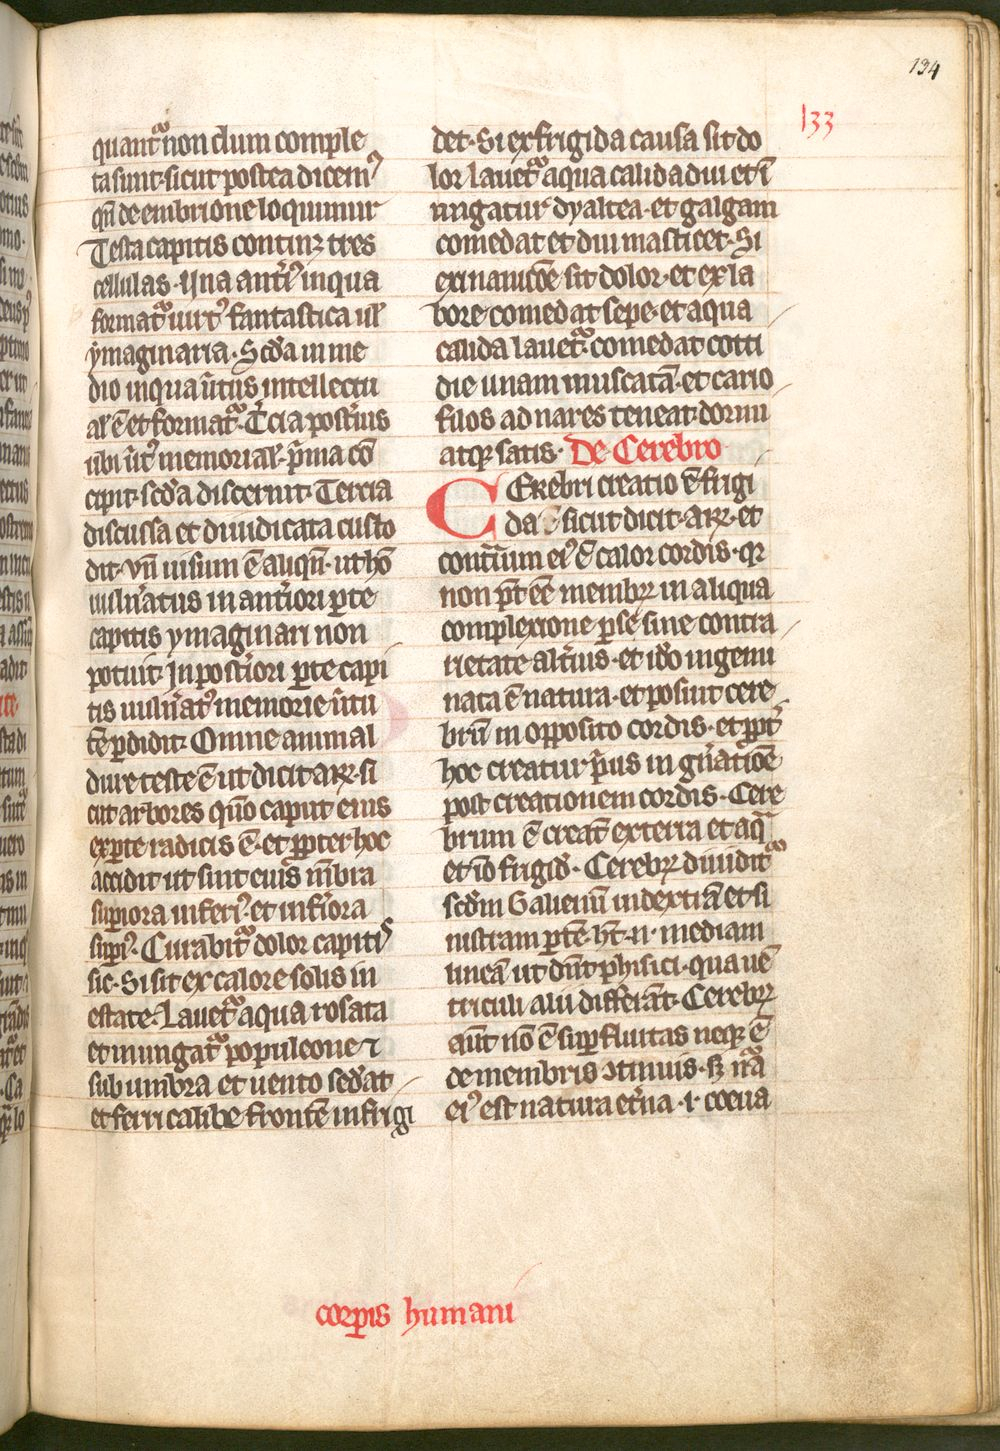 134
133
quantꝰ non dum comple
ta sunt· sicut postea dicemꝰ
qn̄ de embrione loquimur
Testa capitis continꝫ tres
cellulas· Una ant̾iꝰ in qua
format᷑ uirtꝰ fantastica ul̾
ymaginaria· Scd̾a in me
dio in qua ūtus intellectu
al̾ ē et format᷑· T̾cia post̾ius
ubi ūtꝰ memorial̾· p̾ma cō
cipit· scd̾a discernit· Tercia
discussa et diuidicata custo
dit· vn̄ uisum ē aliqn̄· ut hō
uuln̾atus in ant̾iori ꝑte
capitis ymaginari non
potuit· In post̾iori ꝑte capi
tis uuln̾atꝰ memorie ūtu
tē ꝑdidit· Omne animal
diu̾e teste ē ut dicit arꝫ· si
cut arbores quō caput eius
ex ꝑte radicis ē· et ꝓpter hoc
accidit ut sint eius mēbra
suꝑiora inferiꝰ· et inf̾iora
suꝑiꝰ· Curabit᷑ dolor capitis
sic· Si sit ex calore solis in
estate· Lauet᷑ aqua rosata
et inungat᷑ populeone ⁊
sub umbra et uento sed̾at
et ferri calibe frontē infrigi
det· Si ex frigida causa sit do
lor lauet᷑ aqua calida diu et ī
ungatur dyaltea· et galgam
comedat et diu masticet· Si
ex inanicōe sit dolor· et ex la
bore comedat sepe· et aqua
calida lauet᷑· comedat cotti
die unam muscatā· et cario
filos ad nares teneat· dormi
atqꝫ satis· De Cerebro
CErebri creatio ē frigi
da sicut dicit· arꝫ· et
cont̾ium eiꝰ ē calor cordis· qr
non pt̄ eē membrꝫ in aliqua
complexione ꝑ se sine contra
rietate alt̾ius· et id̾o ingeni
nata ē natura· et posiut cere
brū in opposito cordis· et ꝓpt̾
hoc creatur p̾us in gn̾atiōe
post creationem cordis· Cere
brum ē creat̄ ex terra et aq̾
et iō frigid̾· Cerebrꝫ diuidit᷑
scd̾m Galienū in dextrā et si
nistram ꝑtē· ht̄· n̾· mediam
lineā ut dn̄t phisici· qua uē
triculi alii differāt· Cerebrꝫ
aūt nō ē suꝑfluitas neqꝫ ē
de membris ɔtinuis· sꝫ nr̄a
eiꝰ est natura et̾na· i· coeua
corꝑis humani